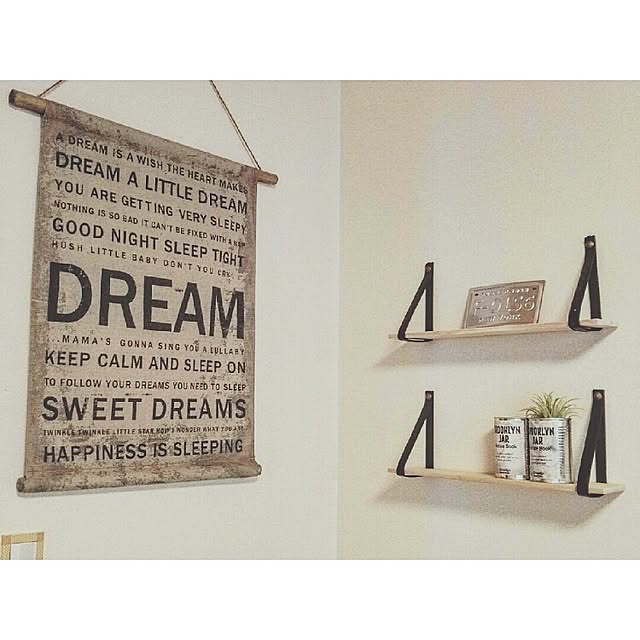 A DREAM IS A WISH THE HEART MAKES
DREAM A LITTLE DREAM
YOU ARE GETTING VERY SLEEPY
NOTHING IS SO BAD IT CAN'T BE FIXED WITH A NAP
GOOD NIGHT SLEEP TIGHT
HUSH LITTLE BABY DON'T YOU CRY
DREAM
...MAMA'S GONNA SING YOU A LULLABY
KEEP CALM AND SLEEP ON
TO FOLLOW YOUR DREAMS YOU NEED TO SLEEP
SWEET DREAMS
TWINKLE TWINKLE LITTLE STAR HOW I WONDER WHAT YOU ARE
HAPPINESS IS SLEEPING
OOKLYN
JAR
OOKLYN
JAR